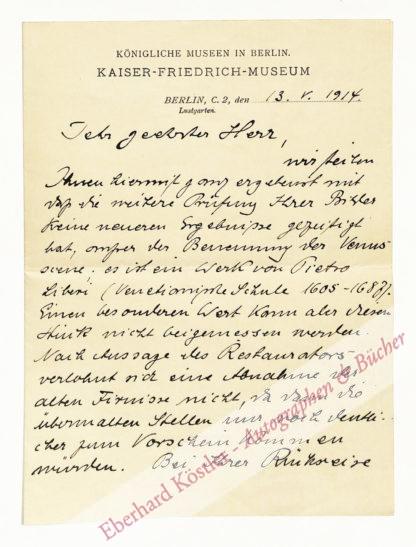 KÖNIGLICHE MUSEEN IN BERLIN.
KAISER-FRIEDRICH-MUSEUM
BERLIN, C. 2, den 13. V. 1914.
Lustgarten.
Sehr geehrter Herr,
wir teilen
Ihnen hiermit ganz ergebenst mit
daß die weitere Prüfung Ihrer Bilder
keine neueren Ergebnisse gezeitigt
hat, außer der Benennung der Venus-
scene: es ist ein Werk von Pietro
Liberi (Venetianische Schule 1605-1687).
Einen besonderen Wert kann aber diesem
Stück nicht beigemessen werden.
Nach Aussage des Restaurators
verlohnt sich eine Abnahme des
alten Firnisses nicht, da dann die
übermalten Stellen nur noch deutli-
cher zum Vorschein kommen
würden. Bei Ihrer Rückreise
Eberhard Köstler Autographen & Bücher